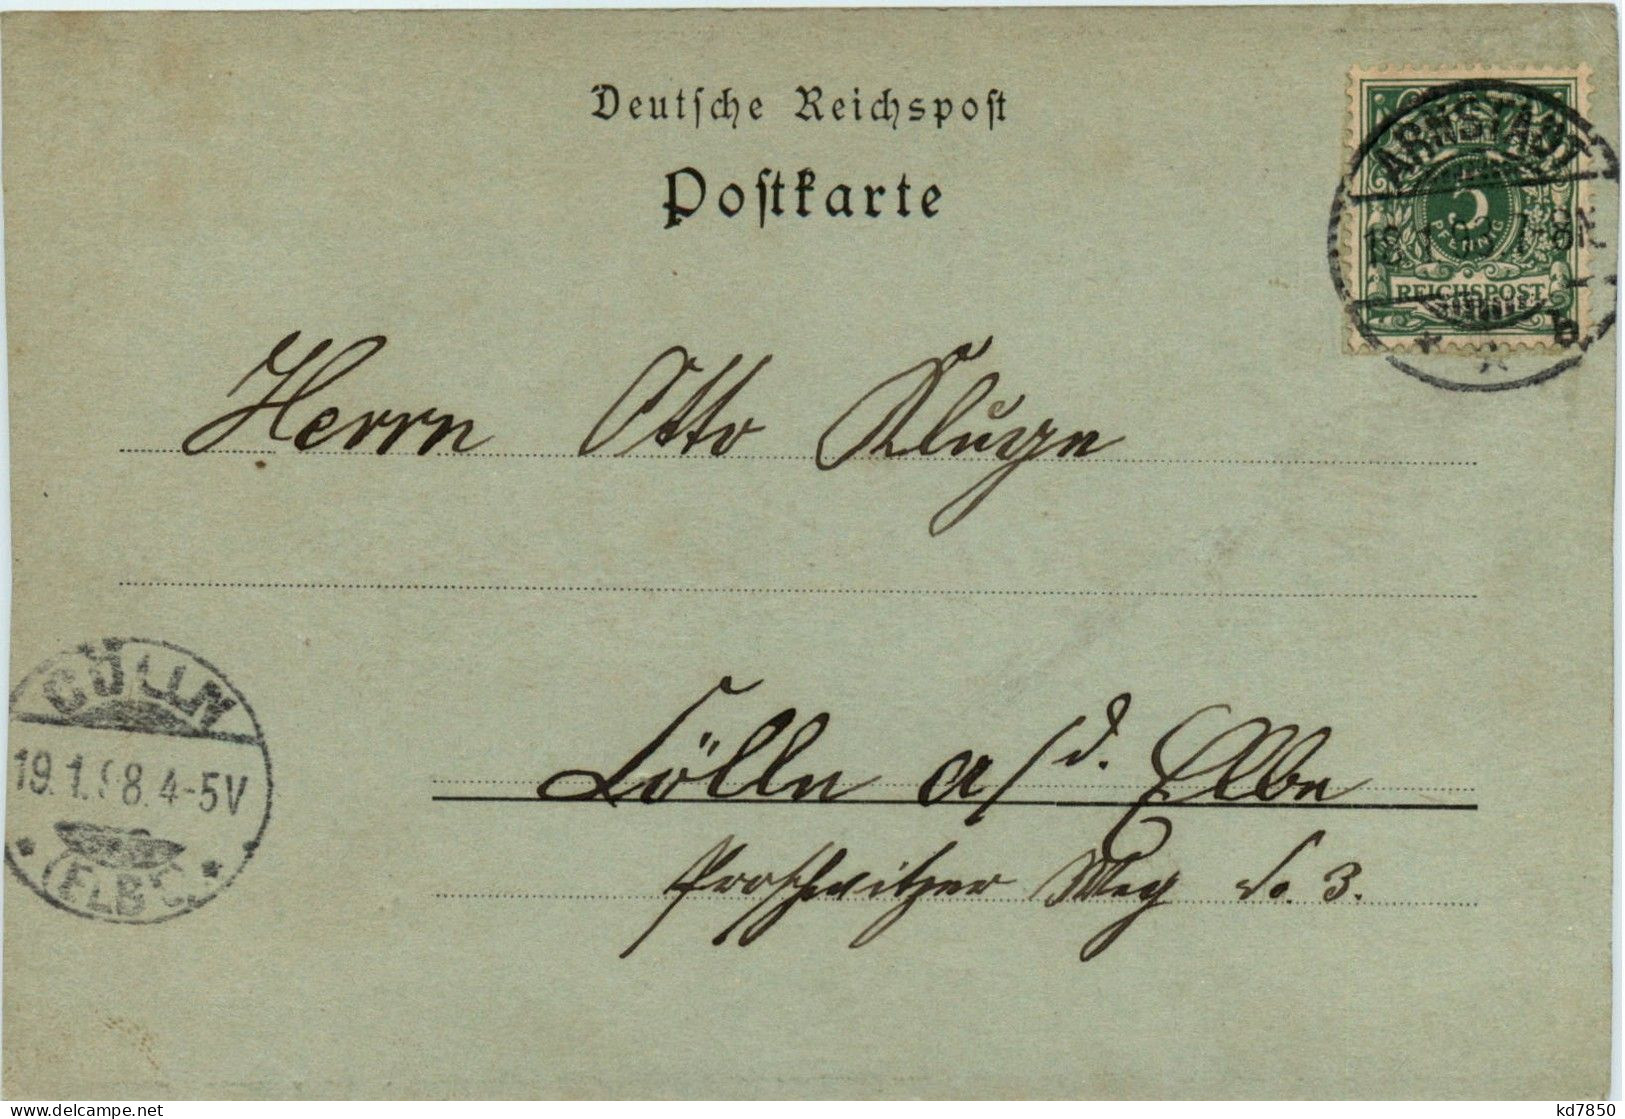 Deutsche Reichspost
Postkarte
ARNSTADT
18.1.98.7-8N.
5
PFENNIG
REICHSPOST
Herrn Otto Kluge
CÖLLN
19.1.98.4-5V
(ELBE)
Cölln a/d. Elbe
Proschwitzer Weg No. 3.
kd7850